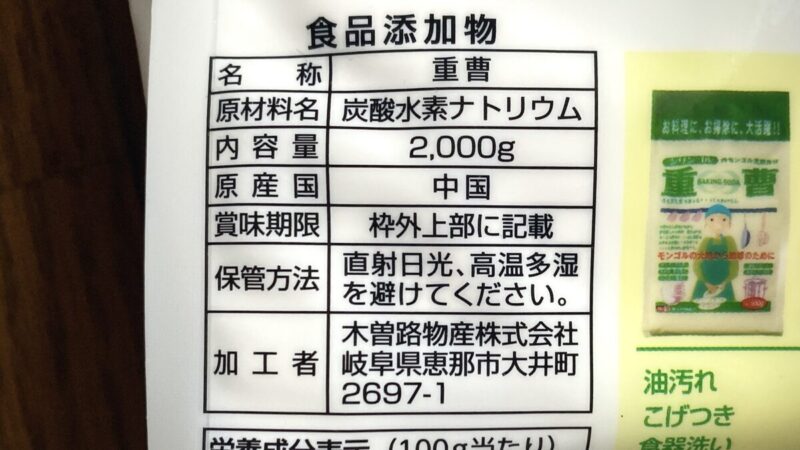 食品添加物
名称 重曹
原材料名 炭酸水素ナトリウム
内容量 2,000g
原産国 中国
賞味期限 枠外上部に記載
保管方法 直射日光、高温多湿
を避けてください。
加工者 木曽路物産株式会社
岐阜県恵那市大井町
2697-1
栄養成分表示(100g当たり)
お料理に、お掃除に、大活躍!!
重曹
BAKING SODA
モンゴルの大地から地球のために
油汚れ
こげつき
食器洗い